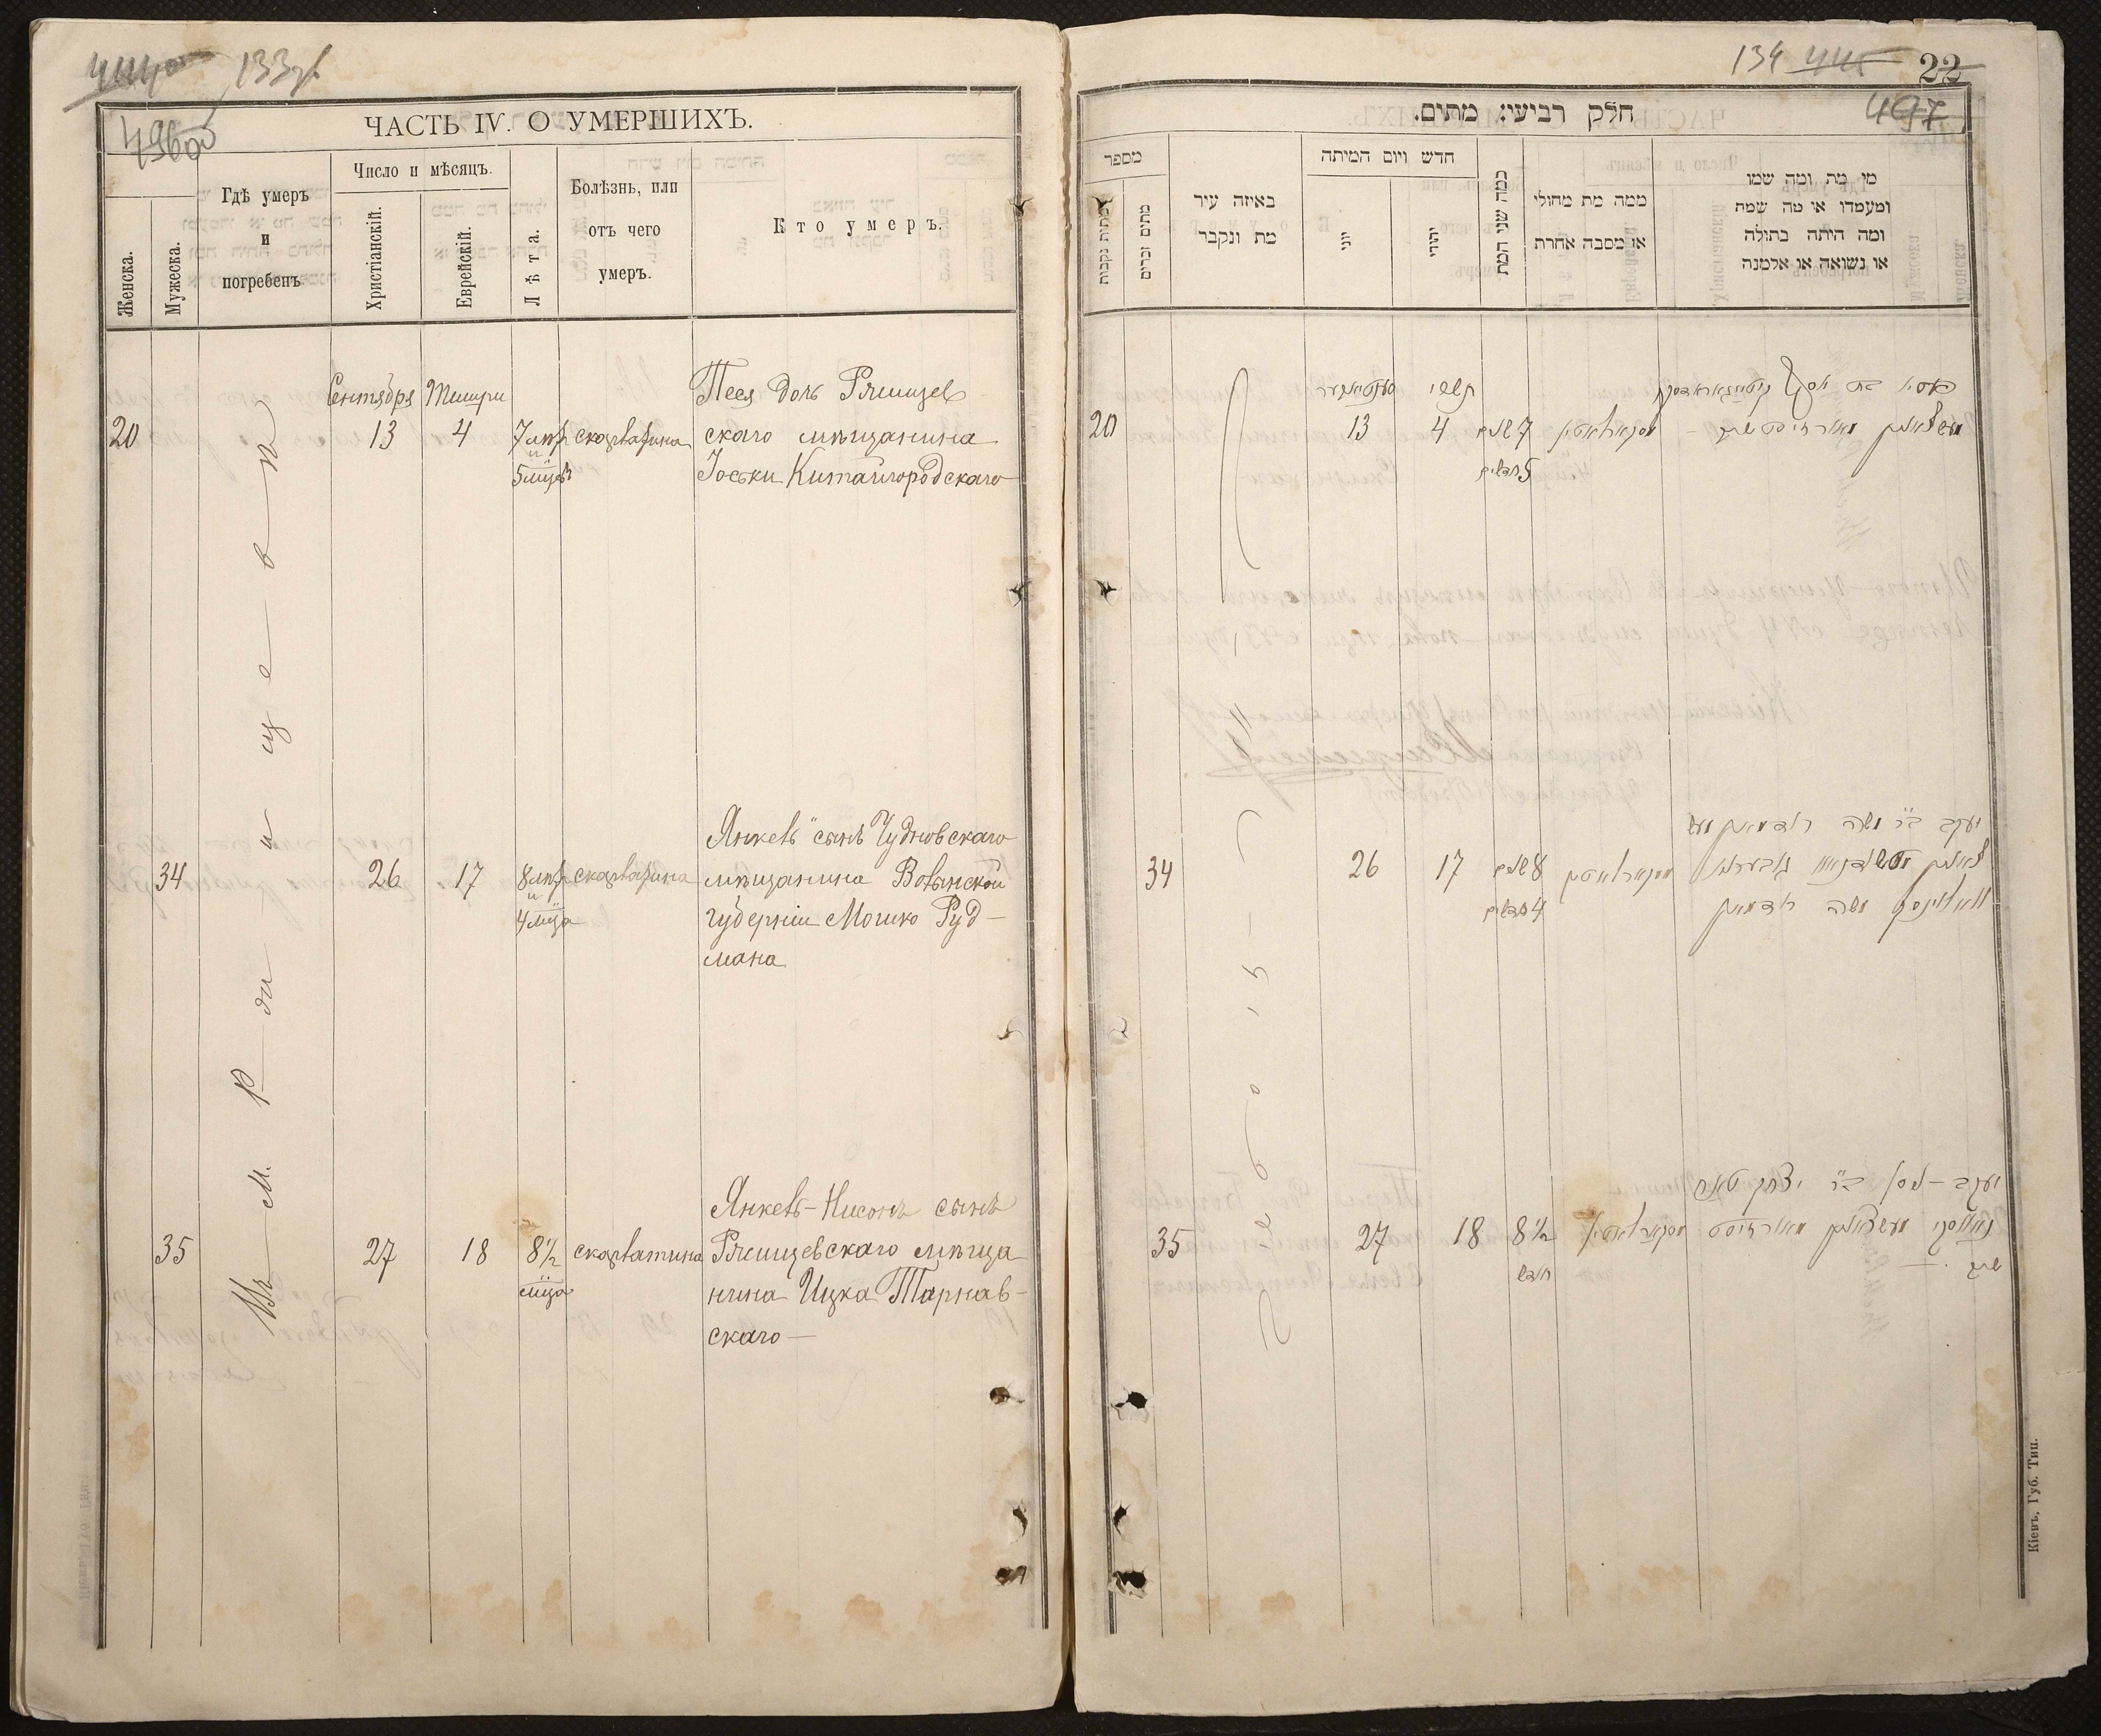 133об
496об
ЧАСТЬ IV. О УМЕРШИХЪ.
Женска.
Мужеска.
Гдѣ умеръ
и
погребенъ
Число и мѣсяцъ.
Христіанскій.
Еврейскій.
Лѣта.
Болѣзнь, или
отъ чего
умеръ.
Кто умеръ.
Въ м. Ржищевѣ
Сентября Тишри
20 13 4 7 лѣтъ и 5 мѣцевъ скарлатина
Песя дочь Ржищев
скаго мѣщанина
Іоськи Китайгородскаго
34 26 17 8 лѣтъ и 4 мѣца скарлатина
Янкель сынъ Чудновскаго
мѣщанина Волынской
губерніи Мошко Руд-
мана
35 27 18 8½ мѣца скарлатина
Янкель-Нисонъ сынъ
Ржищевскаго мѣща
нина Ицка Тарнав-
скаго—
134 22
497
חלק רביעי: מתים.
מספר
מתות נקבות
מתים זכרים
באיזה עיר
מת ונקבר
חדש ויום המיתה
יוני
יהודי
כמה שני המת
ממה מת מחולי
או מסבה אחרת
מי מת ומה שמו
ומעמדו או מה שמת
ומה היתה בתולה
או נשואה או אלמנה
תשרי
20 13 4 7 שנים
5 חדשים
פעסיא בת יוסף קיטייגאראדסקי
34 26 17 8 שנים
4 חדשים
יעקב ב״ר משה רודמאן
משה רודמאן
35 27 18 8½
חודש
יעקב-ניסן ב״ר יצחק טאר
נאווסקי
Кіевъ, Губ. Тип.